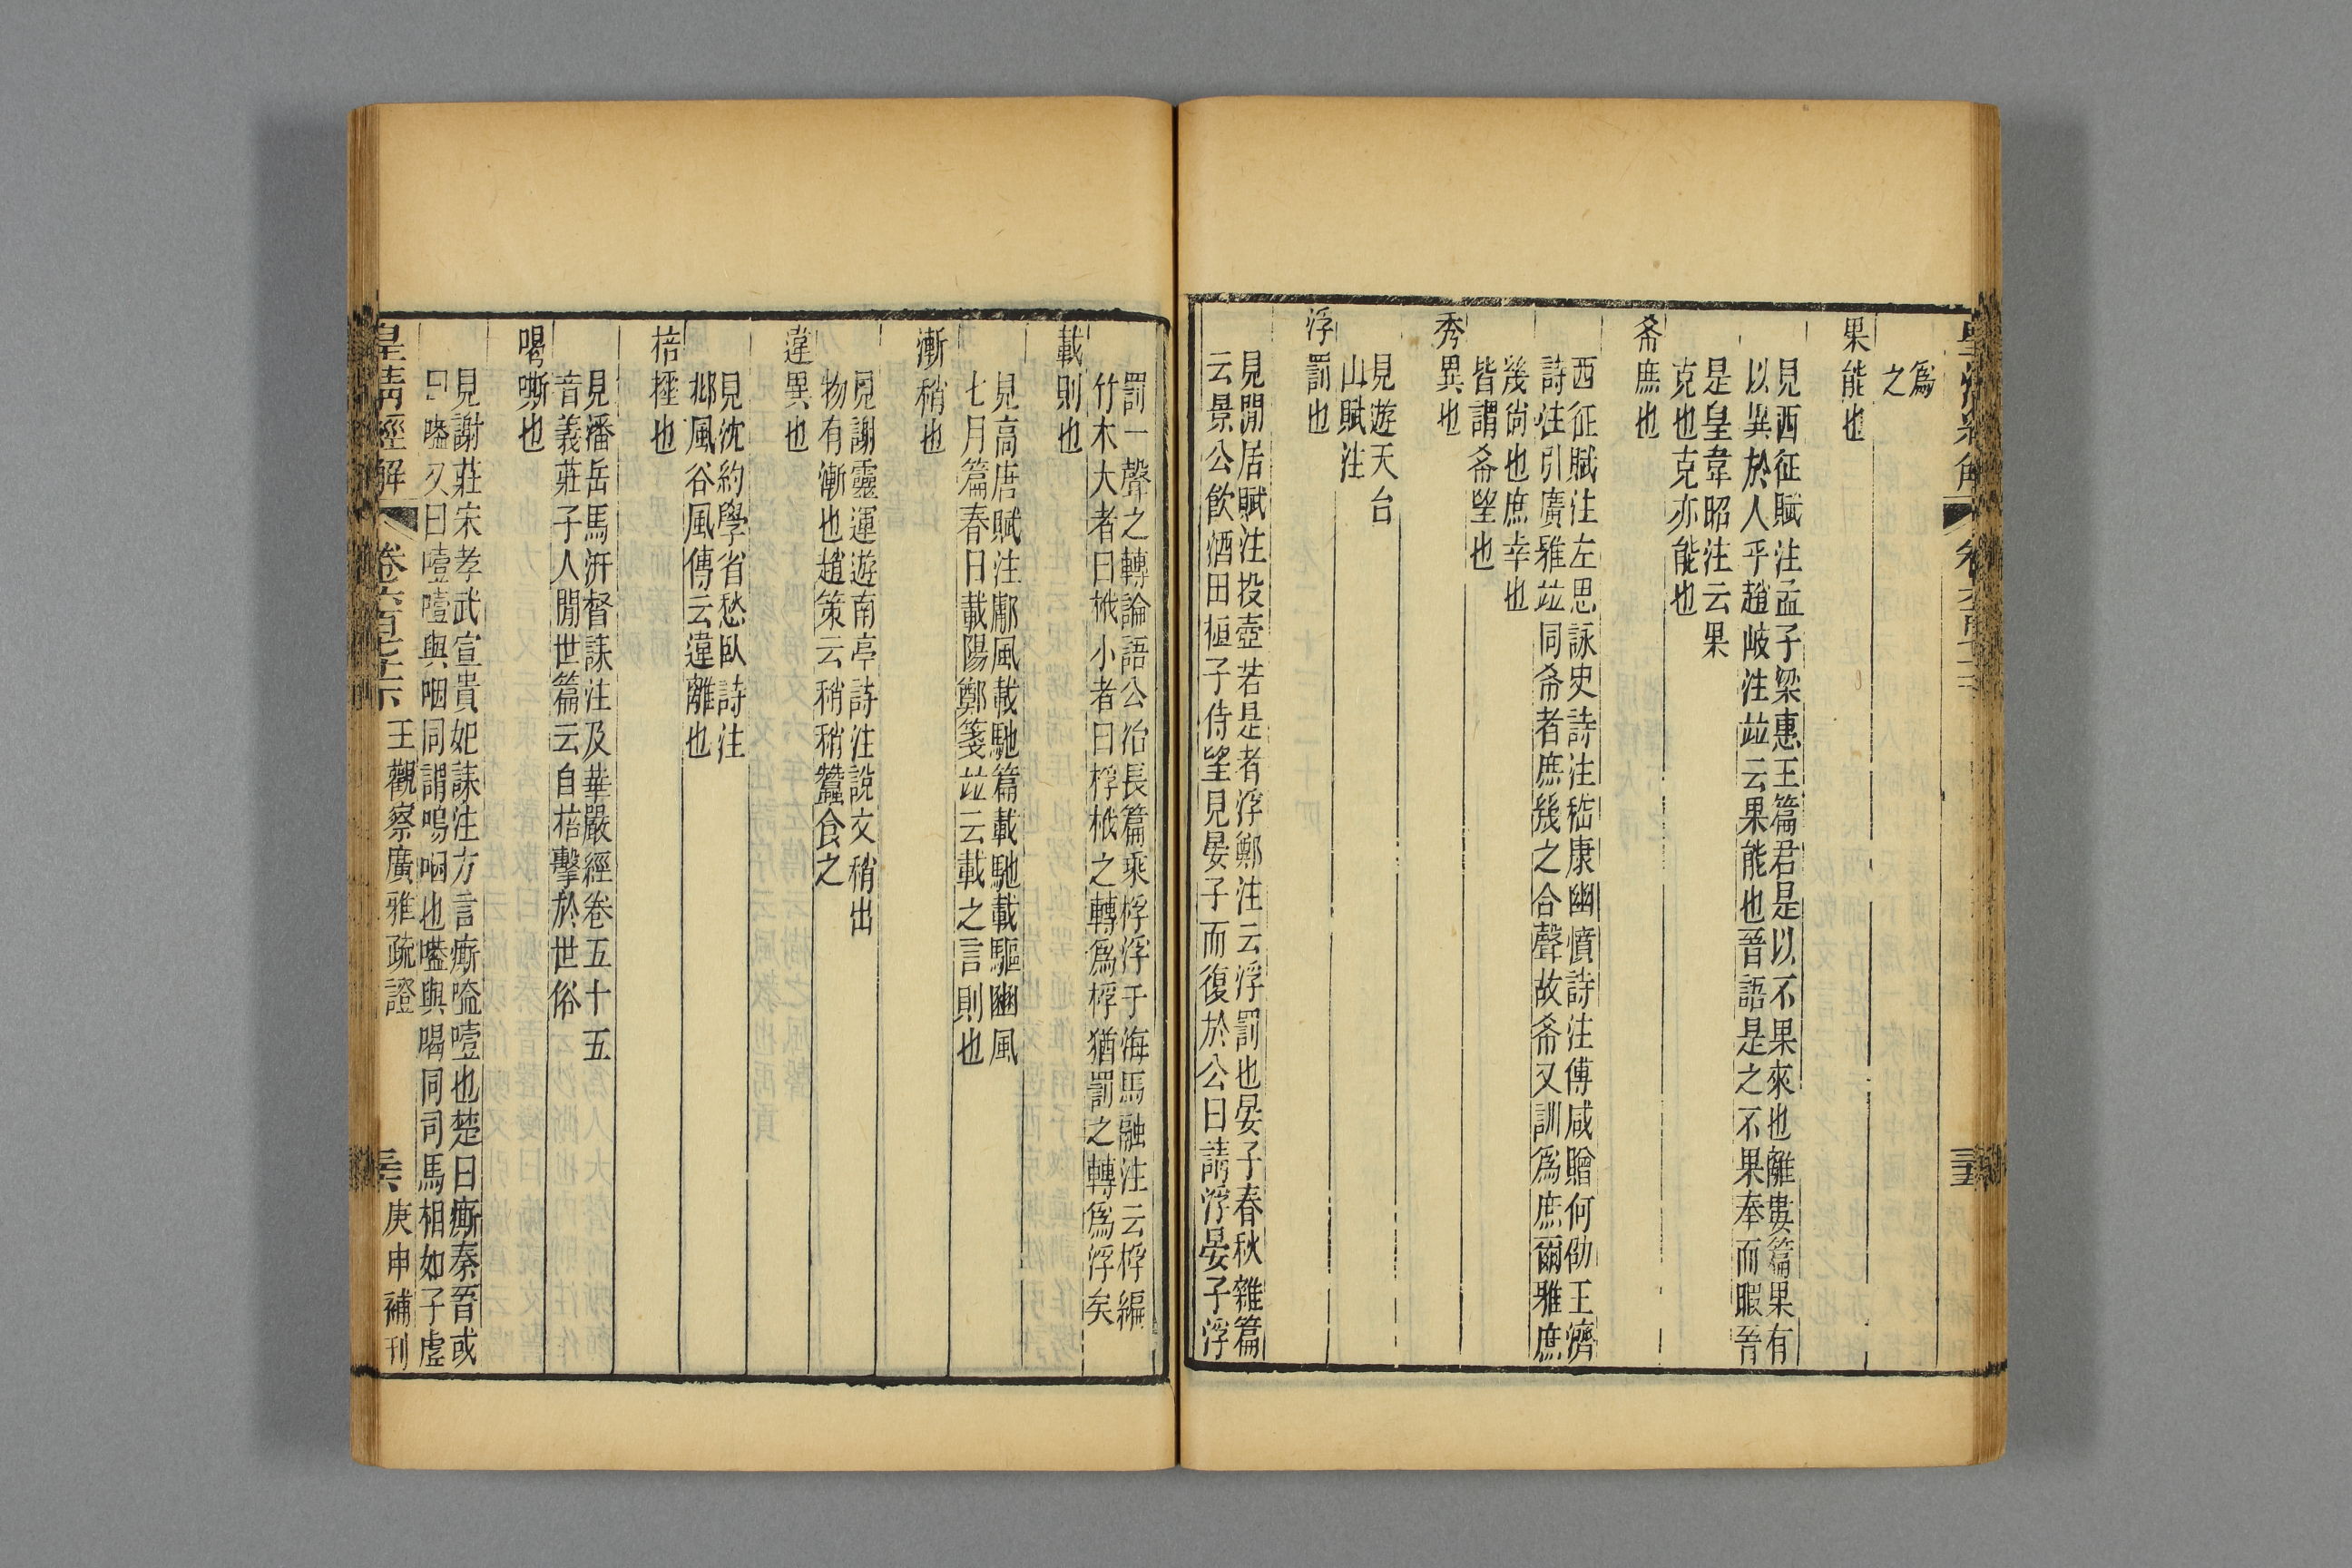 爲
之
果能也
見西征賦注孟子梁惠王篇君是以不果來也離婁篇果有
以異於人乎趙岐注竝云果能也晉語是之不果奉而暇晉
是皇韋昭注云果
克也克亦能也
希庶也
西征賦注左思詠史詩注嵇康幽憤詩注傅咸贈何劭王濟
詩注引廣雅竝同希者庶幾之合聲故希又訓爲庶爾雅庶
幾尚也庶幸也
皆謂希望也
秀異也
見遊天台
山賦注
浮罰也
見閒居賦注投壺若是者浮鄭注云浮罰也晏子春秋雜篇
云景公飲酒田桓子侍望見晏子而復於公曰請浮晏子浮
罰一聲之轉論語公冶長篇乘桴浮于海馬融注云桴編
竹木大者曰栰小者曰桴栰之轉爲桴猶罰之轉爲浮矣
載則也
見高唐賦注鄘風載馳篇載馳載驅豳風
七月篇春日載陽鄭箋竝云載之言則也
漸稍也
見謝靈運遊南亭詩注說文稍出
物有漸也趙策云稍稍蠶食之
違異也
見沈約學省愁臥詩注
邶風谷風傳云違離也
掊挃也
見潘岳馬汧督誄注及華嚴經卷五十五
音義莊子人閒世篇云自掊擊於世俗
喝嘶也
見謝莊宋孝武宣貴妃誄注方言㾷嗌噎也楚曰㾷秦晉或
曰嗌又曰噎噎與咽同謂嗚咽也嗌與喝同司馬相如子虛
皇清經解 卷六百七十下 王觀察廣雅疏證 庚申補刊